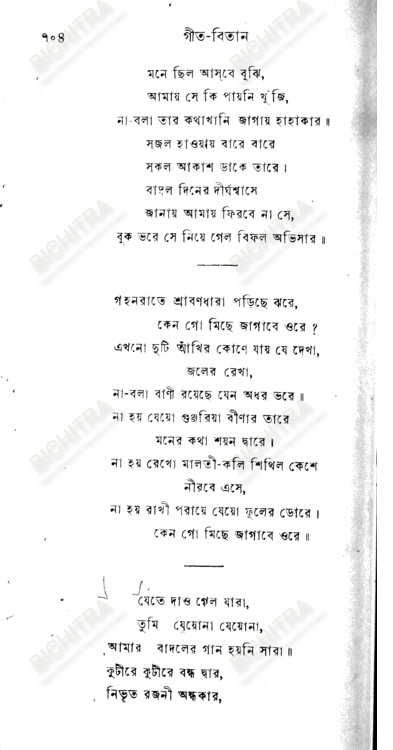 ১০৪ গীত-বিতান
মনে ছিল আস্‌বে বুঝি,
আমায় সে কি পায়নি খুঁজি,
না-বলা তার কথাখানি জাগায় হাহাকার॥
সজল হাওয়ায় বারে বারে
সকল আকাশ ডাকে তারে।
বাদল দিনের দীর্ঘশ্বাসে
জানায় আমায় ফিরবে না সে,
বুক ভরে সে নিয়ে গেল বিফল অভিসার॥
গহনরাতে শ্রাবণধারা পড়িছে ঝরে,
কেন গো মিছে জাগাবে ওরে?
এখনো দুটি আঁখির কোণে যায় যে দেখা,
জলের রেখা,
না-বলা বাণী রয়েছে যেন অধর ভরে॥
না হয় যেয়ো গুঞ্জরিয়া বীণার তারে
মনের কথা শয়ন দ্বারে।
না হয় রেখো মালতী-কলি শিথিল কেশে
নীরবে এসে,
না হয় রাখী পরায়ে যেয়ো ফুলের ডোরে।
কেন গো মিছে জাগাবে ওরে॥
যেতে দাও গেল যারা,
তুমি যেয়োনা যেয়োনা,
আমার বাদলের গান হয়নি সারা॥
কুটীরে কুটীরে বন্ধ দ্বার,
নিভৃত রজনী অন্ধকার,
BICHITRA
BICHITRA
BICHITRA
BICHITRA
BICHITRA
BICHITRA
BICHITRA
BICHITRA